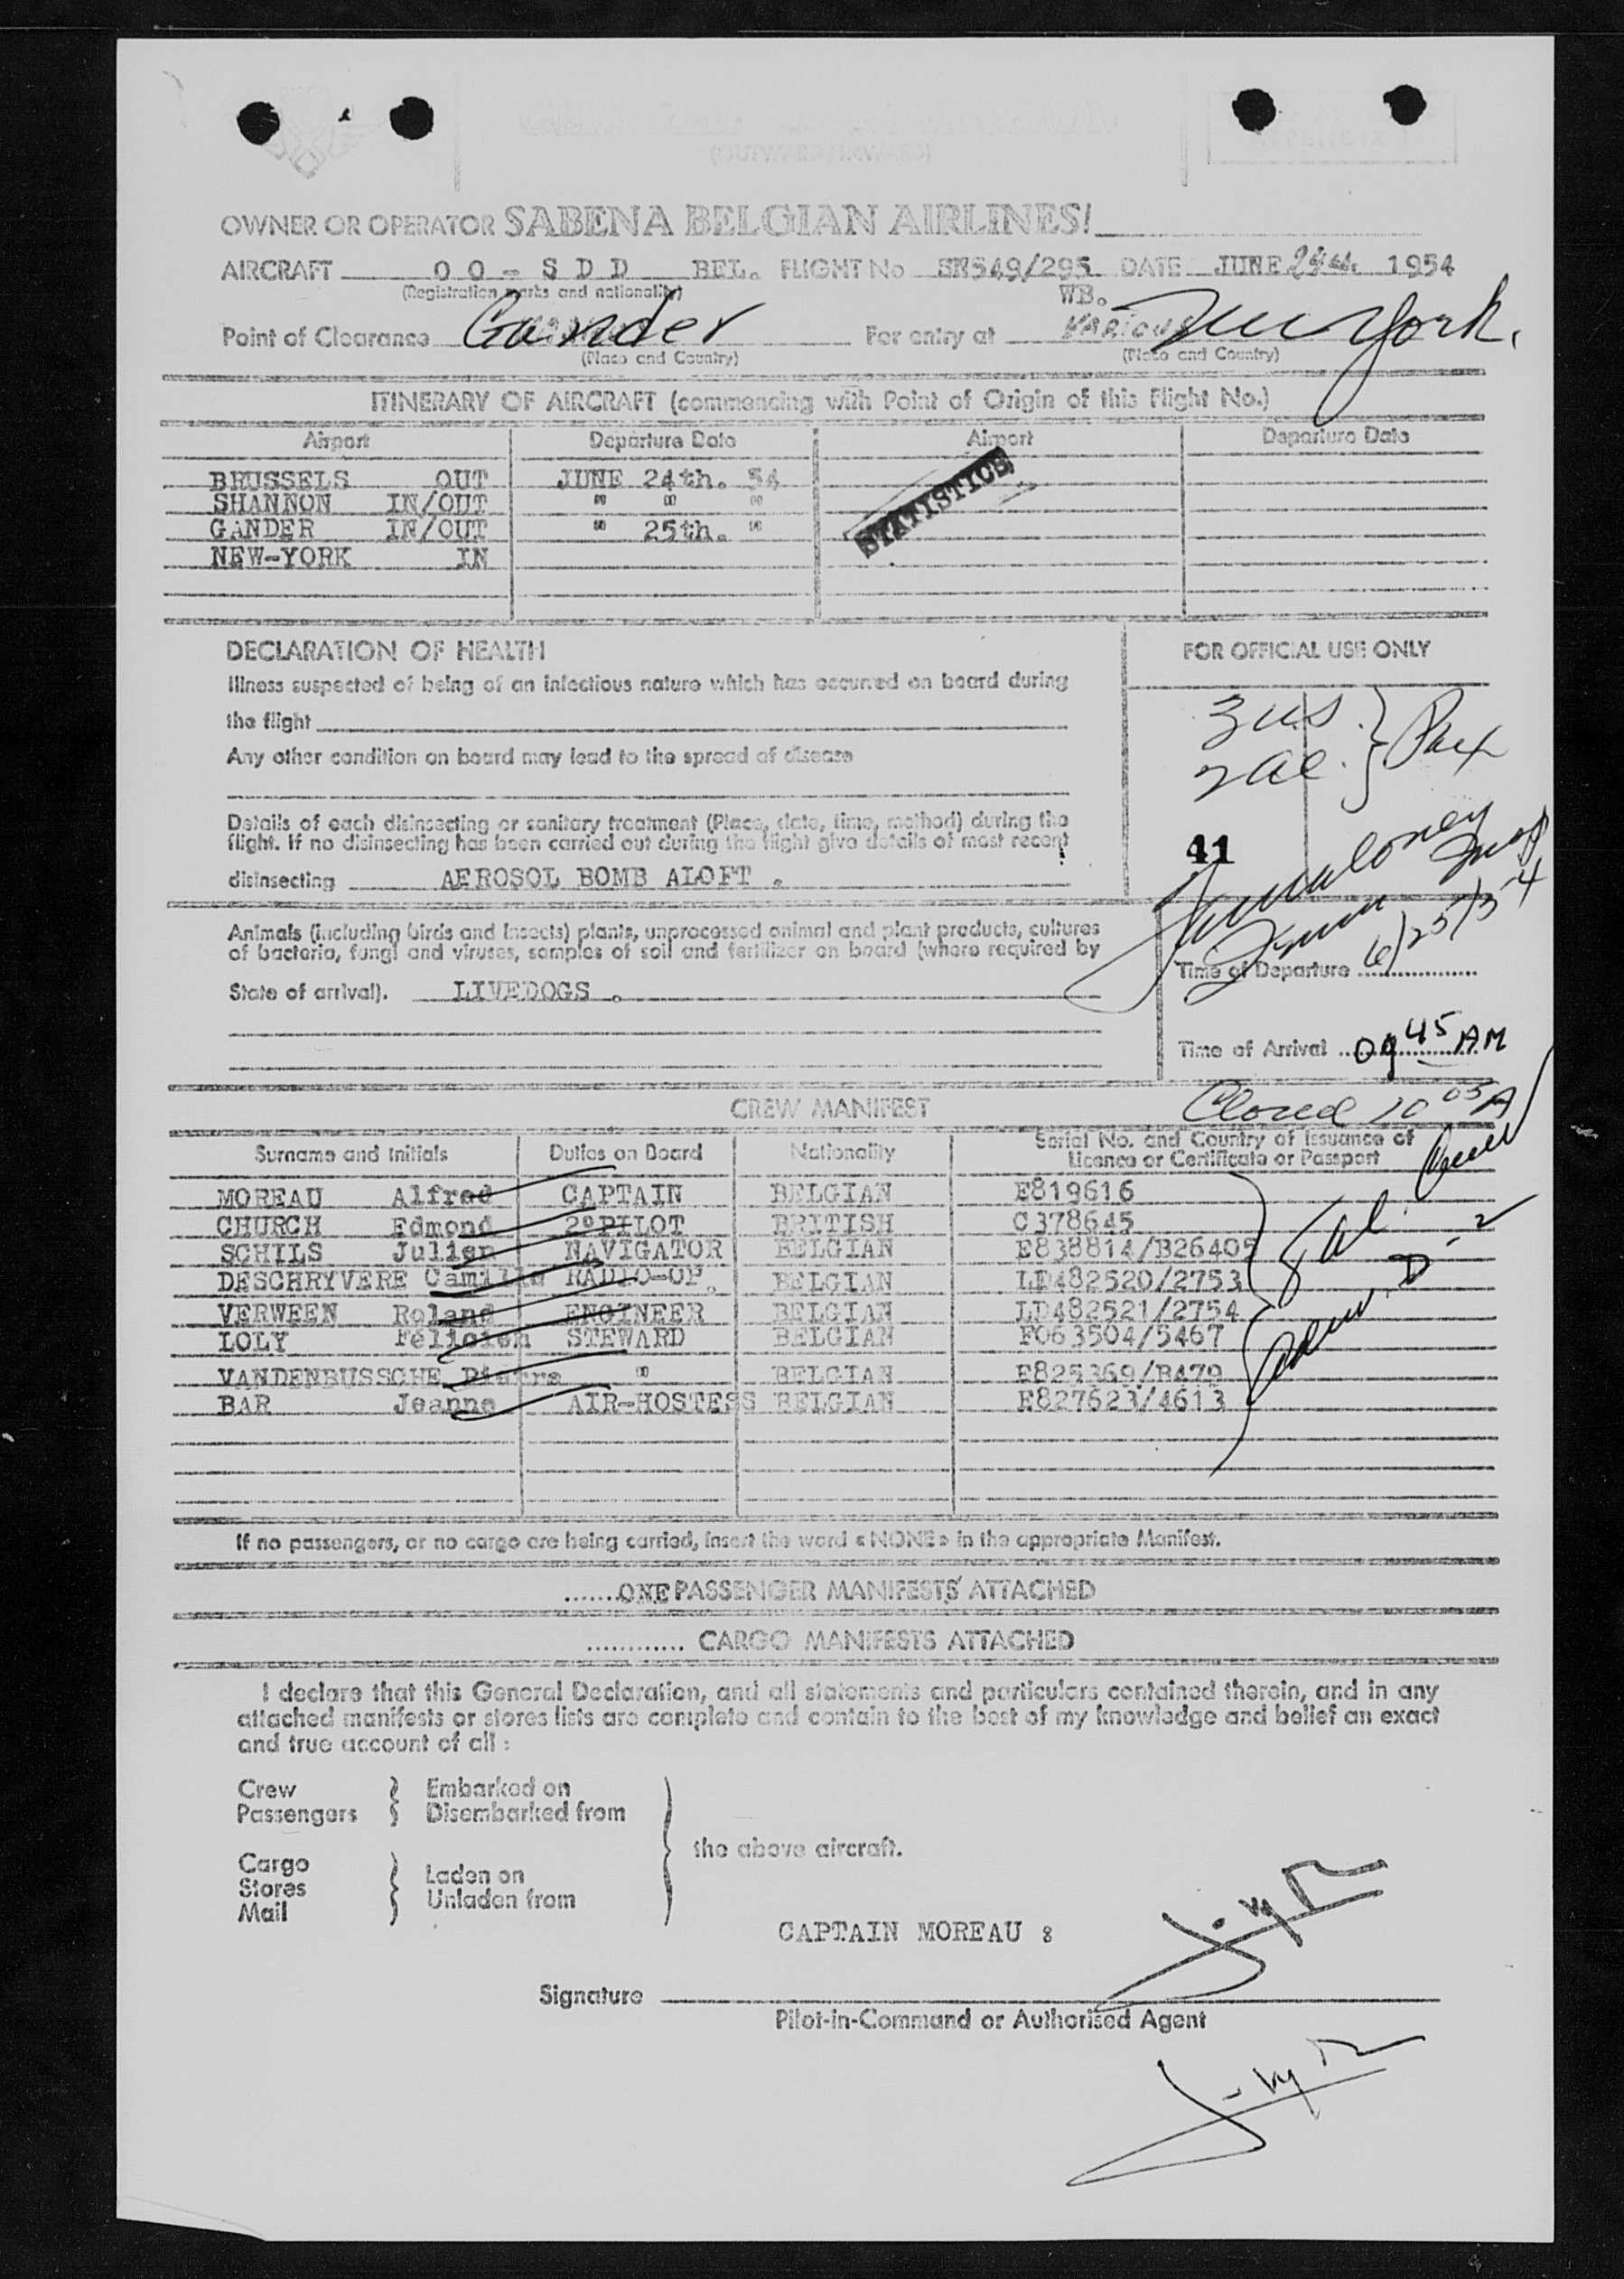 OWNER OR OPERATOR SABENA BELGIAN AIRLINES!
AIRCRAFT O O - S D D BEL. FLIGHT No SN549/295 DATE JUNE 24th. 1954
(Registration marks and nationality) WB.
Point of Clearance Gander For entry at VARIOUS New York.
(Place and Country) (Place and Country)
ITINERARY OF AIRCRAFT (commencing with Point of Origin of this Flight No.)
Airport Departure Date Airport Departure Date
BRUSSELS OUT JUNE 24th. 54
SHANNON IN/OUT " " "
GANDER IN/OUT " 25th. "
NEW-YORK IN
STATISTICS
DECLARATION OF HEALTH
Illness suspected of being of an infectious nature which has occurred on board during
the flight
Any other condition on board may lead to the spread of disease
Details of each disinsecting or sanitary treatment (Place, date, time, method) during the
flight. If no disinsecting has been carried out during the flight give details of most recent
disinsecting AEROSOL BOMB ALOFT .
FOR OFFICIAL USE ONLY
3 US. } Pax
2 al.
41
6/25/54
Animals (including birds and insects) plants, unprocessed animal and plant products, cultures
of bacteria, fungi and viruses, samples of soil and fertilizer on board (where required by
State of arrival). LIVEDOGS .
Time of Departure
Time of Arrival 09 45 AM
Closed 10 05 A
CREW MANIFEST
Surname and Initials Duties on Board Nationality Serial No. and Country of Issuance of
Licence or Certificate or Passport
MOREAU Alfred CAPTAIN BELGIAN E819616
CHURCH Edmond 2°PILOT BRITISH C378645
SCHILS Julien NAVIGATOR BELGIAN E838814/B26405
DESCHRYVERE Camille RADIO-OP. BELGIAN LD482520/2753
VERWEEN Roland ENGINEER BELGIAN LD482521/2754
LOLY Félicien STEWARD BELGIAN F063504/5467
VANDENBUSSCHE Pierre " BELGIAN E825369/B479
BAR Jeanne AIR-HOSTESS BELGIAN E827623/4613
8 al. D-2
If no passengers, or no cargo are being carried, insert the word «NONE» in the appropriate Manifest.
.......ONE PASSENGER MANIFESTS ATTACHED
............ CARGO MANIFESTS ATTACHED
I declare that this General Declaration, and all statements and particulars contained therein, and in any
attached manifests or stores lists are complete and contain to the best of my knowledge and belief an exact
and true account of all :
Crew Embarked on
Passengers Disembarked from
the above aircraft.
Cargo
Stores Laden on
Mail Unladen from
CAPTAIN MOREAU :
Signature
Pilot-in-Command or Authorised Agent